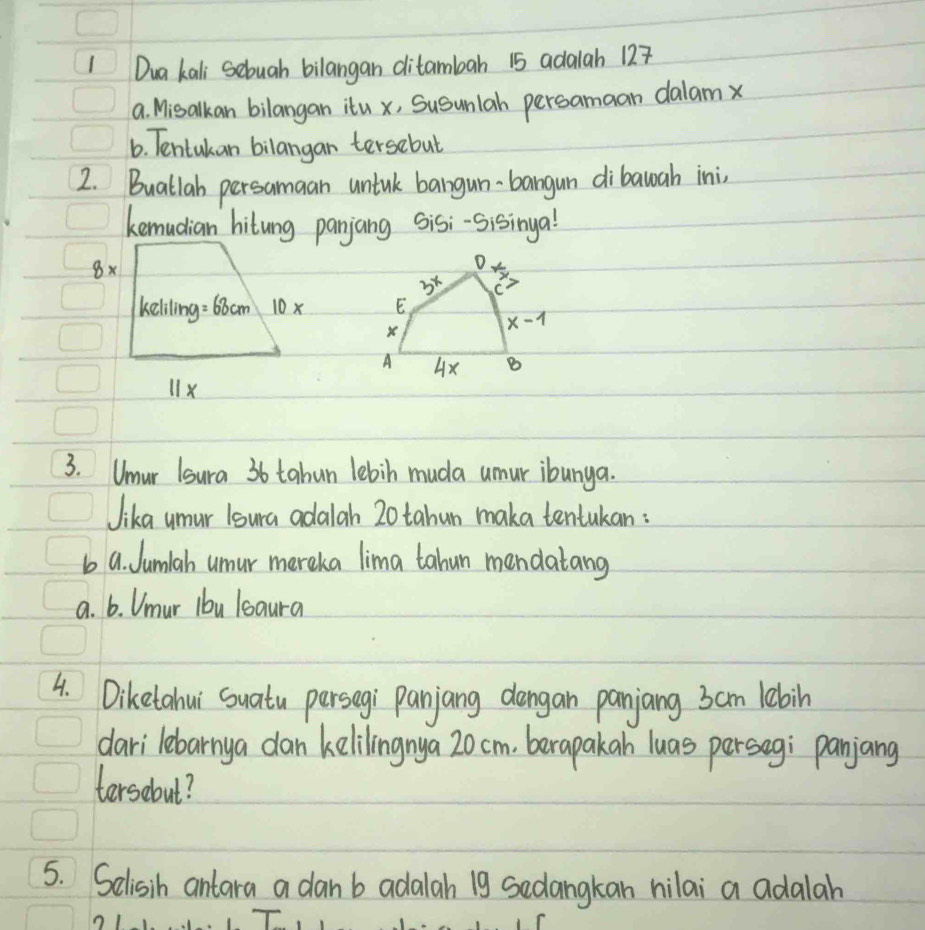 1 Dua kali sebuah bilangan ditambah 15 adalah 127
a. Misalkan bilangan itu x, Susunlah persamaan dalam x
b. Tentukan bilangan tersebut
2. Buatlah persamaan untuk bangun-bangun di bawah ini,
kemudian hitung panjang sisi-sisinya!
8x
keliling = 68cm
10 x
11 x
D
3x
C
E
x
x-1
A
4x
B
3. Umur Isura 36 tahun lebih muda umur ibunya.
Jika umur Isura adalah 20 tahun maka tentukan:
b a. Jumlah umur mereka lima tahun mendatang
a. b. Umur Ibu Isaura
4. Diketahui suatu persegi panjang dengan panjang 3cm lebih
dari lebarnya dan kelilingnya 20 cm. berapakah luas persegi panjang
tersebut?
5. Selisih antara a dan b adalah 19 sedangkan nilai a adalah